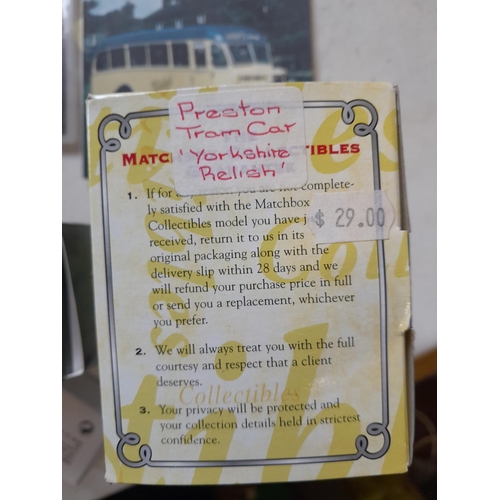 Preston
Tram Car
'Yorkshire
Relish'
MATC TIBLES
1. If for you are not complete-
ly satisfied with the Matchbox
Collectibles model you have j
$ 29.00
received, return it to us in its
original packaging along with the
delivery slip within 28 days and we
will refund your purchase price in full
or send you a replacement, whichever
you prefer.
2. We will always treat you with the full
courtesy and respect that a client
deserves.
Collectibles
3. Your privacy will be protected and
your collection details held in strictest
confidence.